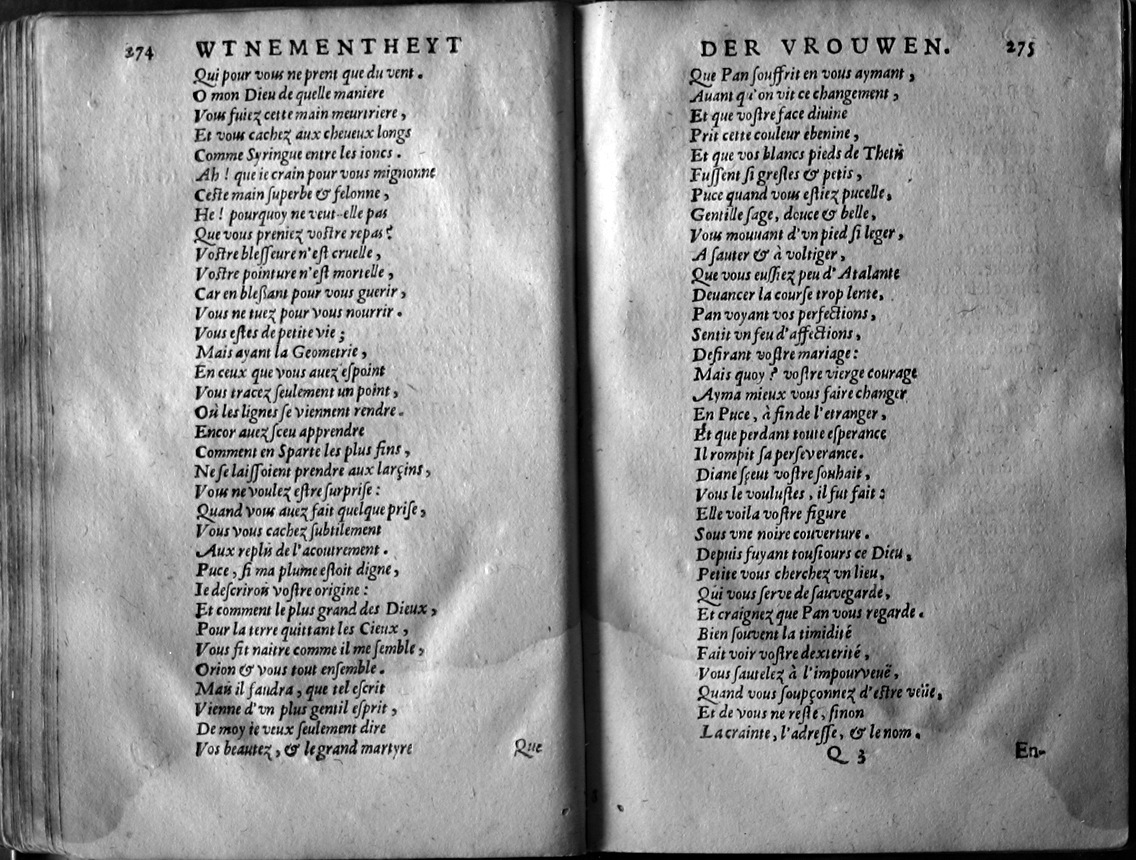 274 WTNEMENTHEYT
Qui pour vous ne prent que du vent.
O mon Dieu de quelle maniere
Vous fuiez cette main meurtriere,
Et vous cachez aux cheueux longs
Comme Syringue entre les ioncs.
Ah! que ie crain pour vous mignonne
Ceſte main ſuperbe & felonne,
He! pourquoy ne veut-elle pas
Que vous preniez voſtre repas?
Voſtre bleſſeure n'eſt cruelle,
Voſtre pointure n'eſt mortelle,
Car en bleßant pour vous guerir,
Vous ne tuez pour vous nourrir.
Vous eſtes de petite vie;
Mais ayant la Geometrie,
En ceux que vous auez eſpoint
Vous tracez ſeulement un point,
Où les lignes ſe viennent rendre.
Encor auez ſceu apprendre
Comment en Sparte les plus fins,
Ne ſe laiſſoient prendre aux larçins,
Vous ne voulez eſtre ſurpriſe:
Quand vous auez fait quelque priſe,
Vous vous cachez ſubtilement
Aux replis de l'acoutrement.
Puce, ſi ma plume eſtoit digne,
Ie deſcrirois voſtre origine:
Et comment le plus grand des Dieux,
Pour la terre quittant les Cieux,
Vous fit naitre comme il me ſemble,
Orion & vous tout enſemble.
Mais il faudra, que tel eſcrit
Vienne d'vn plus gentil eſprit,
De moy ie veux ſeulement dire
Vos beautez, & le grand martyre
Que
DER VROUWEN. 275
Que Pan ſouffrit en vous aymant,
Auant qu'on vit ce changement,
Et que voſtre face diuine
Prit cette couleur ébenine,
Et que vos blancs pieds de Thetis
Fuſſent ſi greſles & petis,
Puce quand vous eſtiez pucelle,
Gentille ſage, douce & belle,
Vous mouuant d'vn pied ſi leger,
A ſauter & à voltiger,
Que vous euſſiez peu d'Atalante
Deuancer la courſe trop lente,
Pan voyant vos perfections,
Sentit vn feu d'affections,
Deſirant voſtre mariage:
Mais quoy? voſtre vierge courage
Ayma mieux vous faire changer
En Puce, à fin de l'etranger,
Et que perdant toute eſperance
Il rompit ſa perſeverance.
Diane ſçeut voſtre ſouhait,
Vous le vouluſtes, il fut fait:
Elle voila voſtre figure
Sous vne noire couverture.
Depuis fuyant touſiours ce Dieu,
Petite vous cherchez vn lieu,
Qui vous ſerve de ſauvegarde,
Et craignez que Pan vous regarde.
Bien ſouvent la timidité
Fait voir voſtre dexterité,
Vous ſautelez à l'impourveuë,
Quand vous ſoupçonnez d'eſtre veüe,
Et de vous ne reſte, ſinon
La crainte, l'adreſſe, & le nom.
Q 3 En-